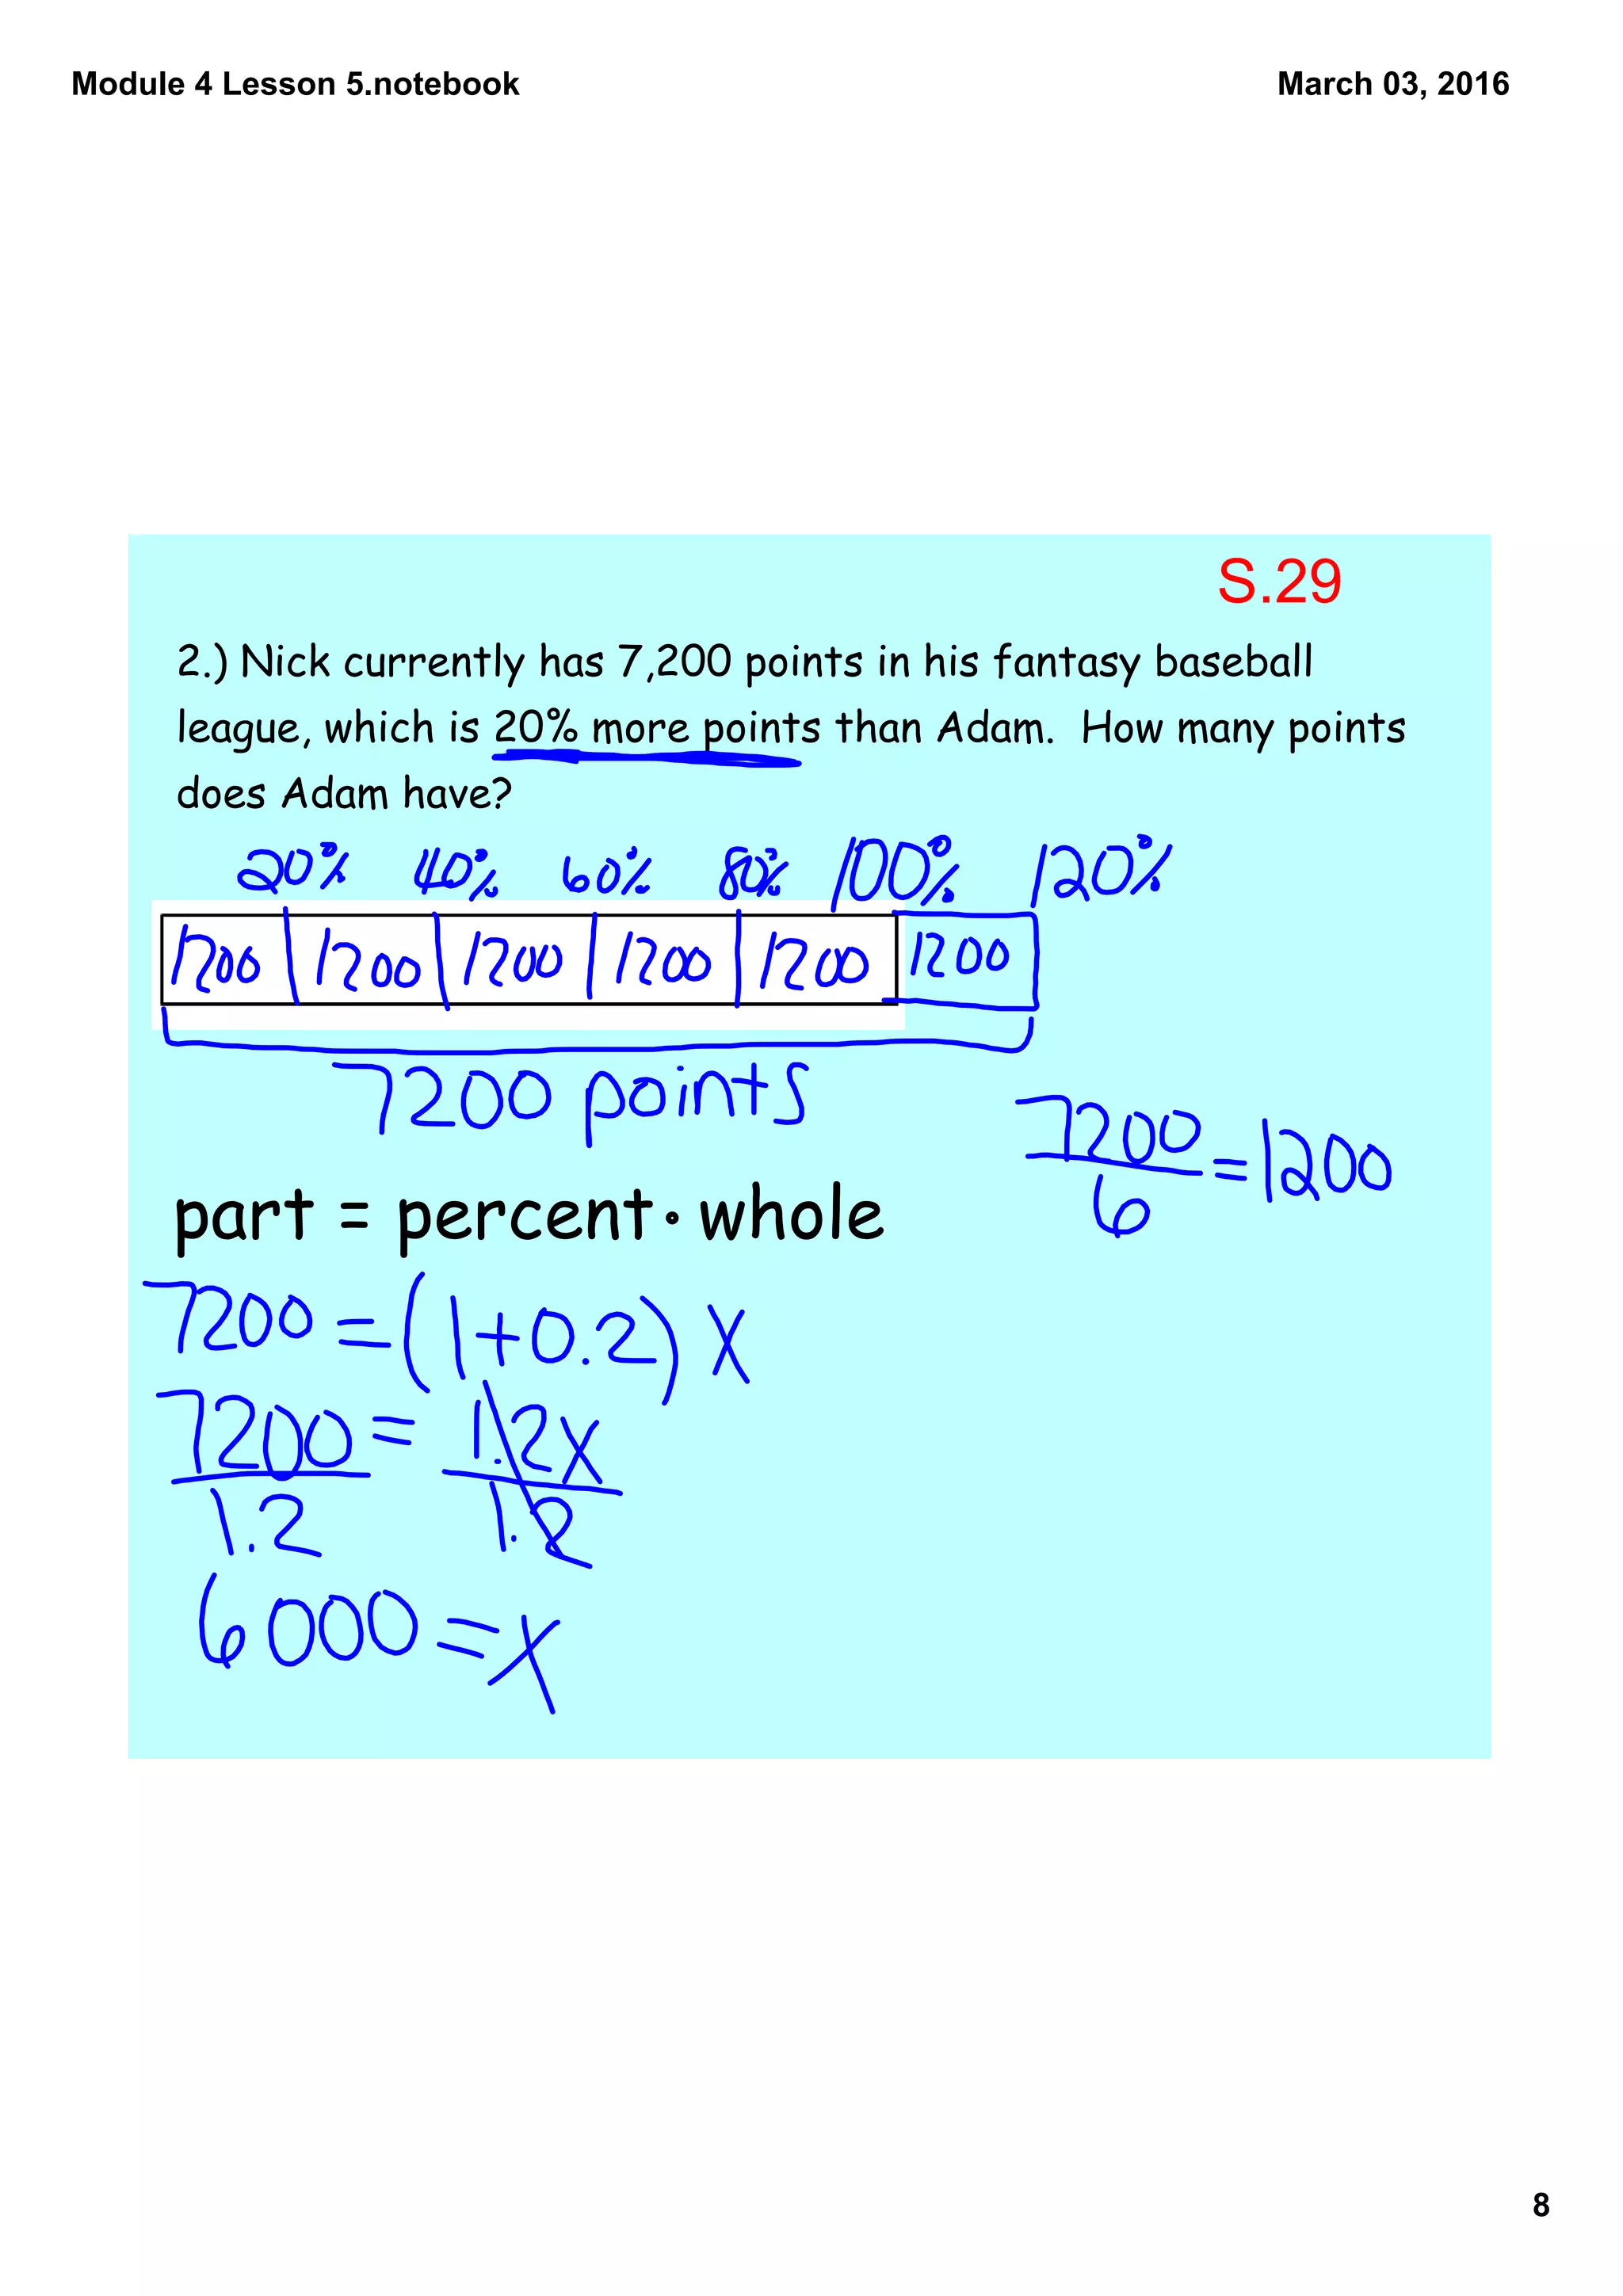 Module 4 Lesson 5.notebook
March 03, 2016
S.29
2.) Nick currently has 7,200 points in his fantasy baseball
league, which is 20% more points than Adam. How many points
does Adam have?
20% 40% 60% 80% 100% 120%
1200 1200 1200 1200 1200 1200
7200 points
7200/6 = 1200
part = percent · whole
7200 = (1+0.2) x
7200 = 1.2x
1.2 1.2
6000 = x
8